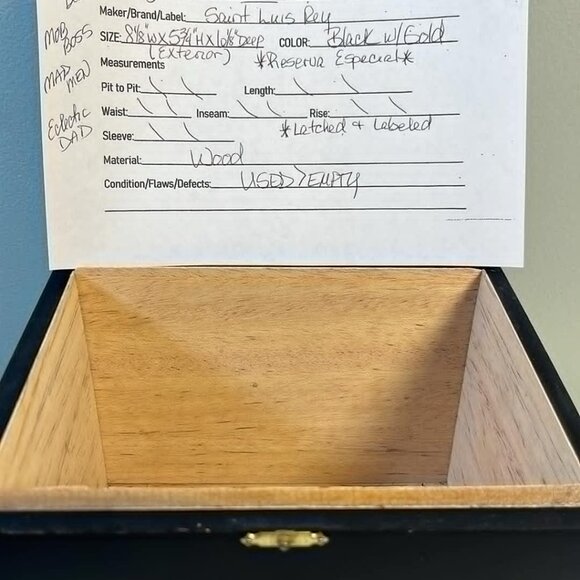 Maker/Brand/Label: Saint Luis Rey
MOB
BOSS
SIZE: 8⅛"W X 5¾"H X 10⅛" Deep COLOR: Black w/ Gold
(Exterior) *Reserva Especial*
Measurements
MAD
MEN
Pit to Pit: Length:
Waist: Inseam: Rise:
Eclectic
DAD
*Latched & Labeled
Sleeve:
Material: Wood
Condition/Flaws/Defects: USED > EMPTY